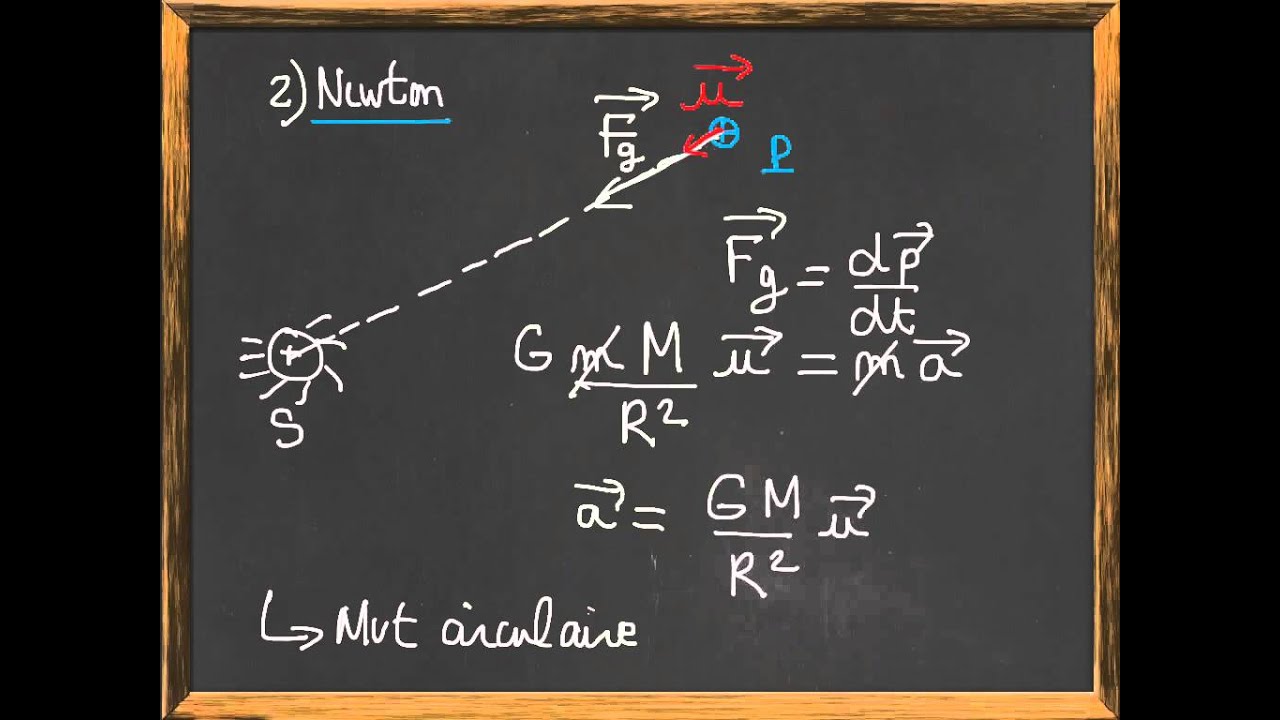 2) Newton
F⃗g u⃗
P
F⃗g = dp⃗/dt
G m M/R² u⃗ = m a⃗
S
a⃗ = GM/R² u⃗
↳ Mvt circulaire